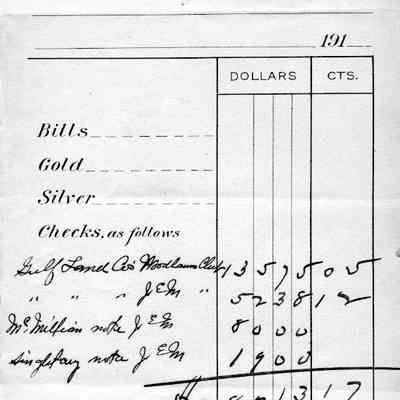 191
DOLLARS CTS.
Bills
Gold
Silver
Checks, as follows
Gulf Land Co's Woodlawn 13575 05
" " " J E M " 5238 12
McMillian note J E M 8000
Singletary note J E M 1900
13 17